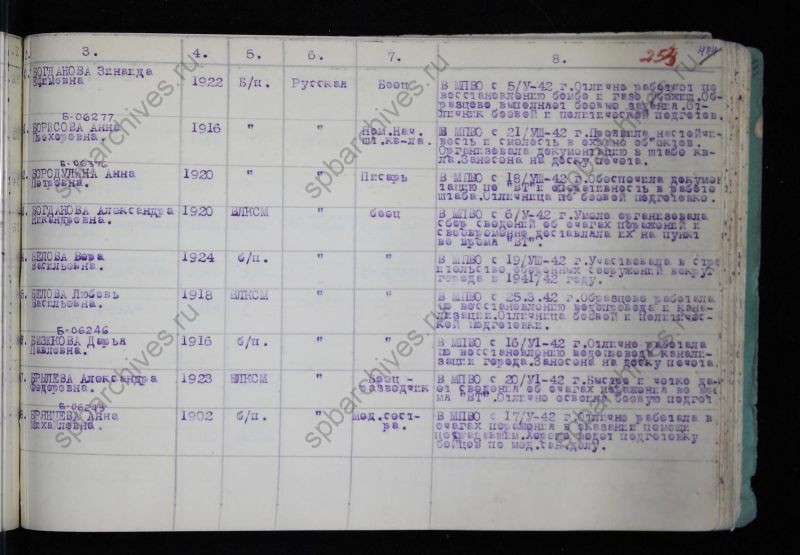 3. 4. 5. 6. 7. 8. 253 484
БОГДАНОВА Зинаида
Ефимовна 1922 Б/п. Русская Боец
В МПВО с 5/У-42 г.Отлично работает по
восстановлению бомбо и газо убежищ.Об-
разцово выполняет боевые задания.От-
личник боевой и политической подготов.
Б-06277
БОРИСОВА Анна
Прохоровна. 1916 " " Пом.Нач.
шт.кв-ла.
В МПВО с 21/УШ-42 г.Проявила настойчи-
вость и смелость в охране об"ектов.
Организовала документацию в штабе кв-
ла.Занесена на доску почета.
БОРОДУЛИНА Анна
Петровна. 1920 " " Писарь
В МПВО с 18/УШ-42 г.Обеспечила докумен
тацию по "ВТ" и оперативность в работе
штаба.Отличница по боевой подготовке.
БОГДАНОВА Александра
Никандровна. 1920 ВЛКСМ " боец
В МПВО с 6/У-42 г.Умело организовала
сбор сведений об очагах поражений и
своевременно доставляла их на пункт
во время "ВТ".
БЕЛОВА Вера
Васильевна. 1924 б/п. " "
В МПВО с 19/УШ-42 г.Участвовала в стро
ительстве оборонных сооружений вокруг
города в 1941/42 году.
БЕЛОВА Любовь
Васильевна. 1918 ВЛКСМ " "
В МПВО с 25.3.42 г.Образцово работала
по восстановлению водопровода и кана-
лизации.Отличница боевой и политичес-
кой подготовки.
Б-06246
БИЗЮКОВА Дарья
Павловна. 1916 б/п. " "
В МПВО с 16/У1-42 г.Отлично работала
по восстановлению водопровода канали-
зации города.Занесена на доску почета.
БРЫЛЕВА Александра
Федоровна. 1923 ВЛКСМ " Боец -
разводчик
В МПВО с 20/У1-42 г.Быстро и четко да-
ет сведения об очагах поражения во вре
мя "ВТ".Отлично освоила боевую подгот
БРЯНЦЕВА Анна
Михайловна. 1902 б/п. " мед.сест-
ра.
В МПВО с 17/У-42 г.Отлично работала в
очагах поражения в оказании помощи
пострадавшим.Хорошо ведет подготовку
бойцов по мед.сан.делу.
spbarchives.ru
spbarchives.ru
spbarchives.ru
spbarchives.ru
spbarchives.ru
spbarchives.ru